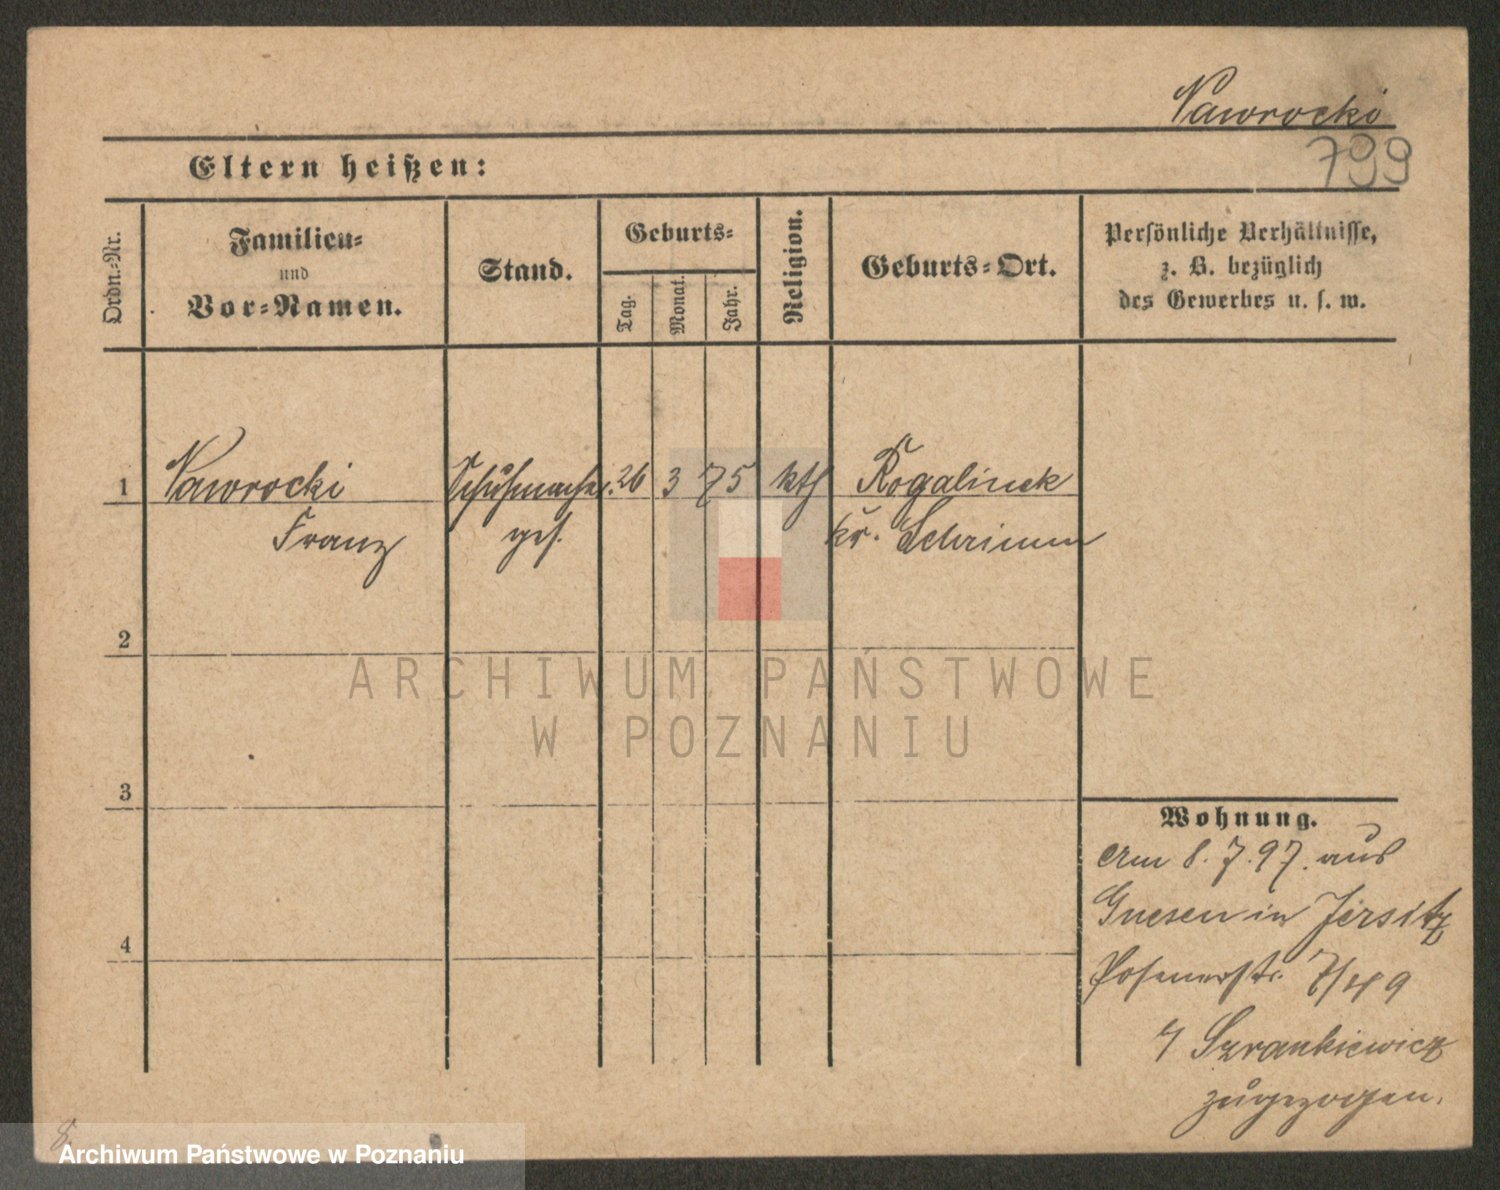 Nawrocki
799
Eltern heißen:
Ordn.-Nr.
Familien-
und
Vor-Namen.
Stand.
Geburts-
Tag.
Monat.
Jahr.
Religion.
Geburts-Ort.
Persönliche Verhältnisse,
z. B. bezüglich
des Gewerbes u. s. w.
1 Nawrocki Schuhmacher 26 3 75 kth Rogalinek
Franz ges. Kr. Schrimm
2
3
4
Wohnung.
Am 8. 7. 97. aus
Gnesen in Jersitz
Posenerstr. 7/49
Szrankiewicz
zugezogen.
8.
ARCHIWUM PAŃSTWOWE
W POZNANIU
Archiwum Państwowe w Poznaniu